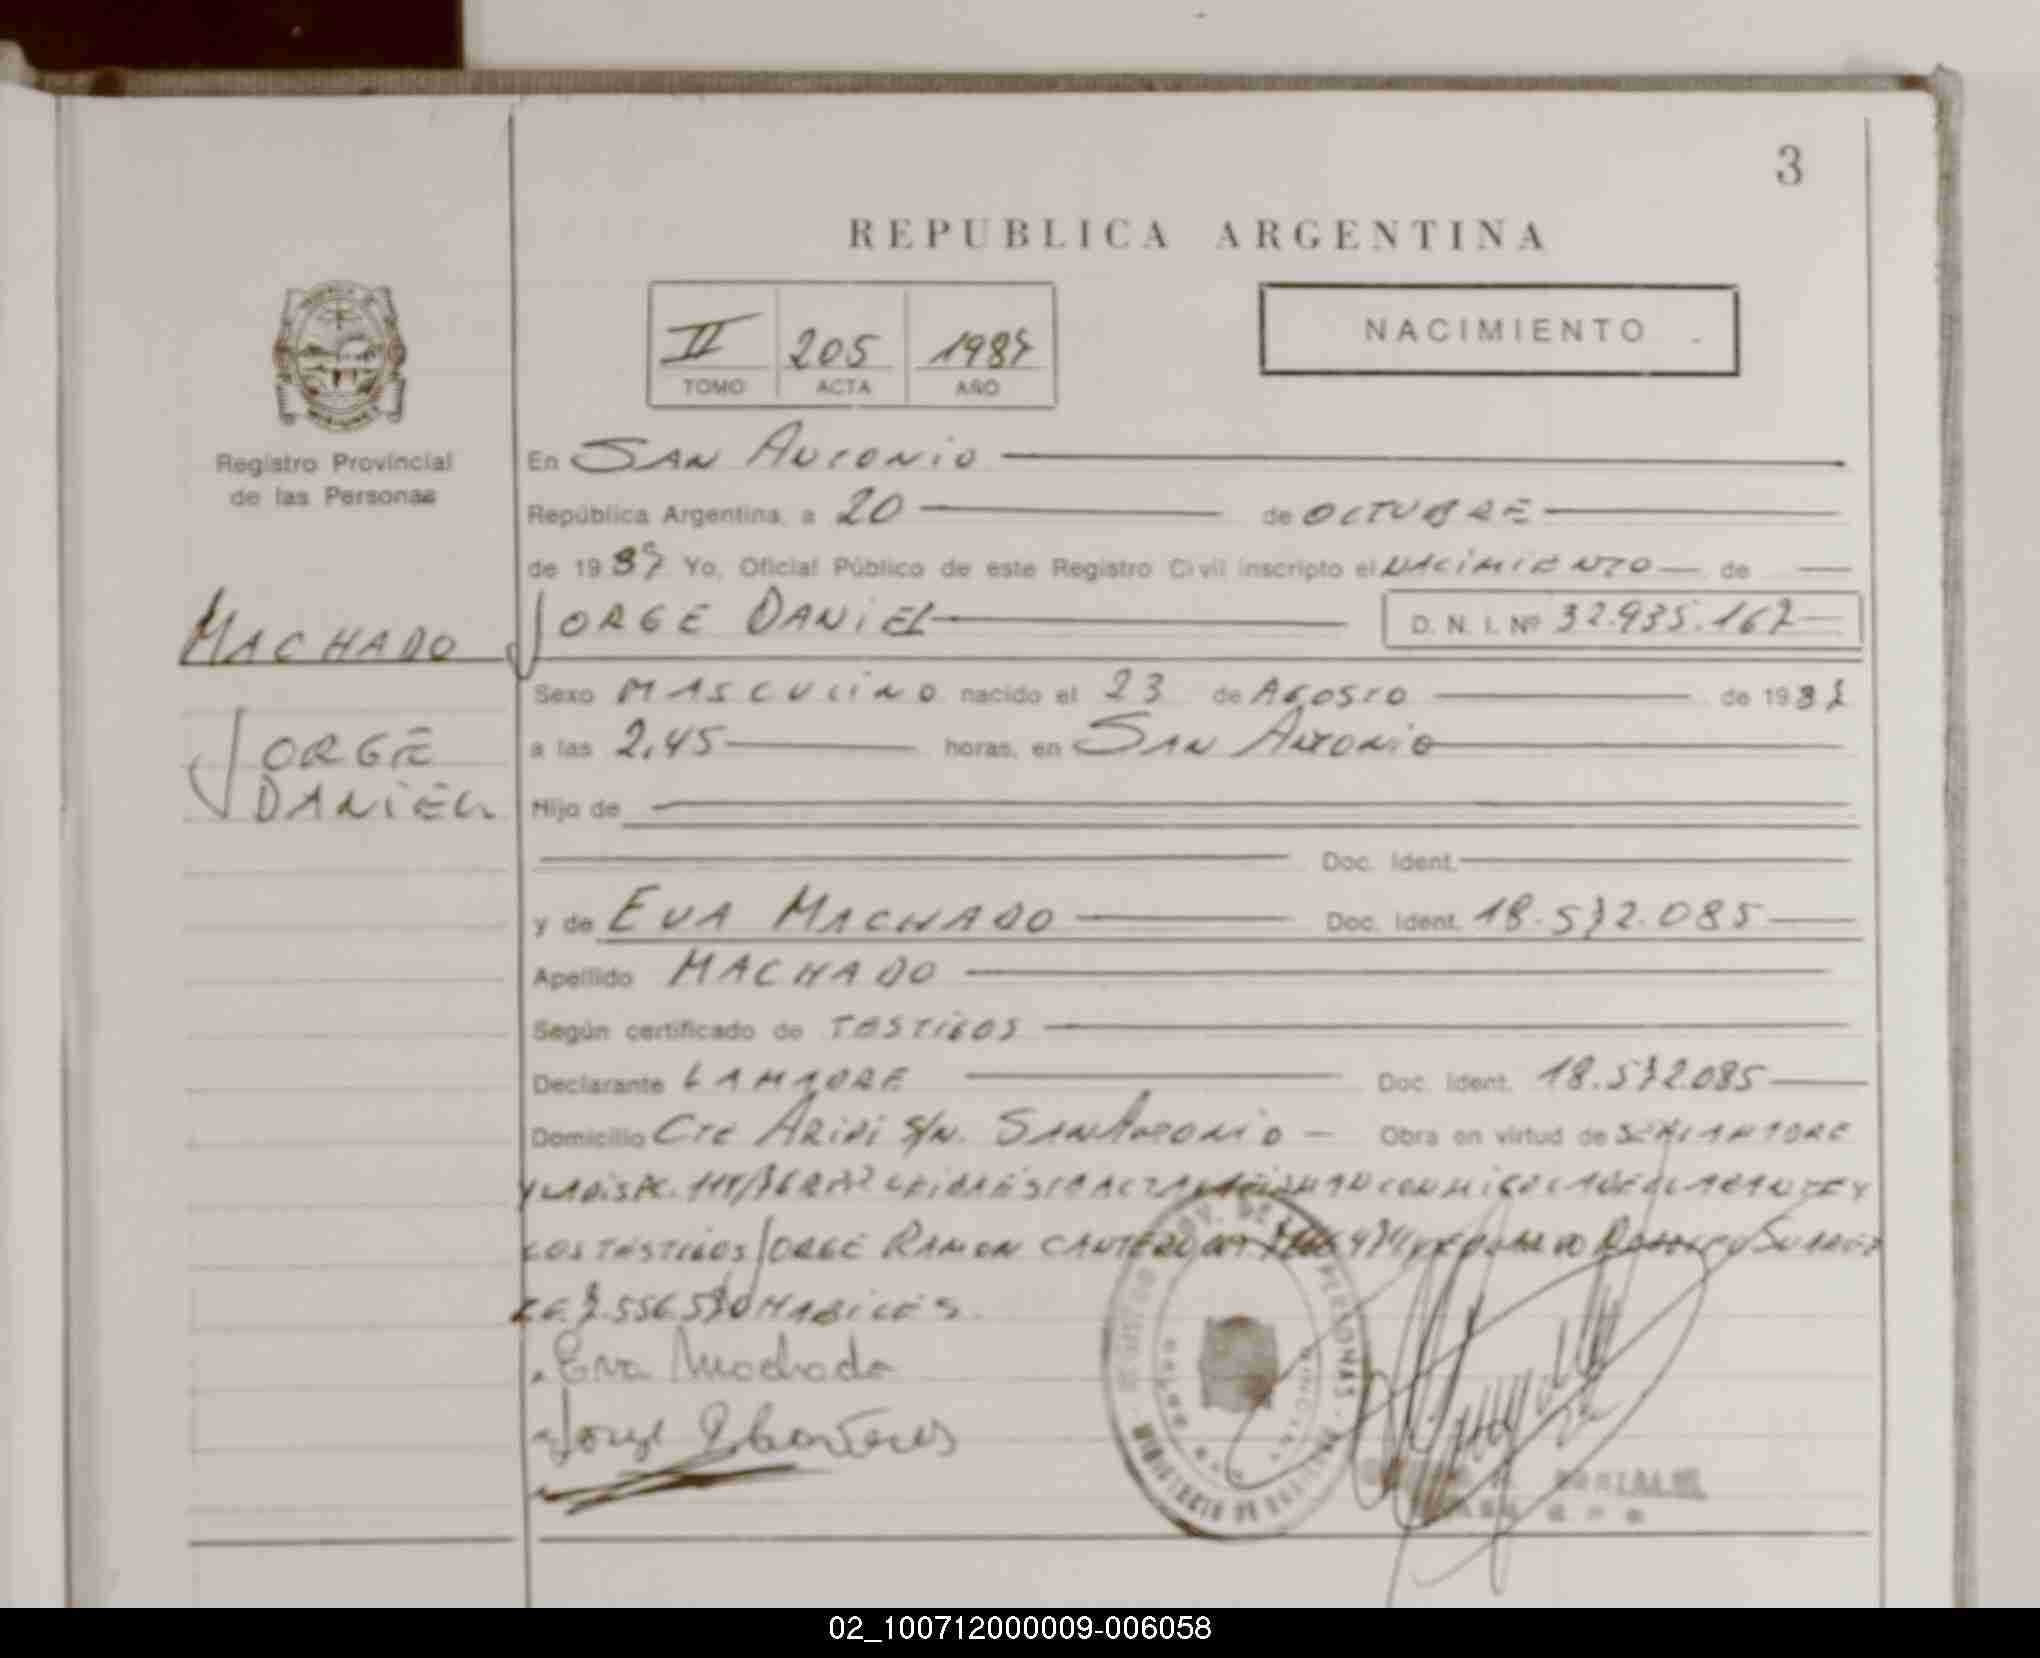 3
REPUBLICA ARGENTINA
II 205 1987
TOMO ACTA AÑO
NACIMIENTO
Registro Provincial
de las Personas
En SAN ANTONIO
República Argentina, a 20 de OCTUBRE
de 1987 Yo, Oficial Público de este Registro Civil inscripto el NACIMIENTO de
MACHADO
JORGE DANIEL D. N. I. Nº 32.935.167
Sexo MASCULINO nacido el 23 de AGOSTO de 1987
JORGE
DANIEL
a las 2,45 horas, en SAN ANTONIO
Hijo de
Doc. Ident.
y de EVA MACHADO Doc. Ident. 18.572.085
Apellido MACHADO
Según certificado de TESTIGOS
Declarante LA MADRE Doc. Ident. 18.572.085
Domicilio Cte ARIPI S/N. SAN ANTONIO Obra en virtud de SER LA MADRE
Y LA DISP. LEIDA ESTA ACTA LA FIRMAN CONMIGO LA DECLARANTE Y
LOS TESTIGOS JORGE RAMON CANTERO
7.556.570 HABILES.
Eva Machado
Jorge
REGISTRO PROV. DE LAS PERSONAS
MINISTERIO DE
02_100712000009-006058